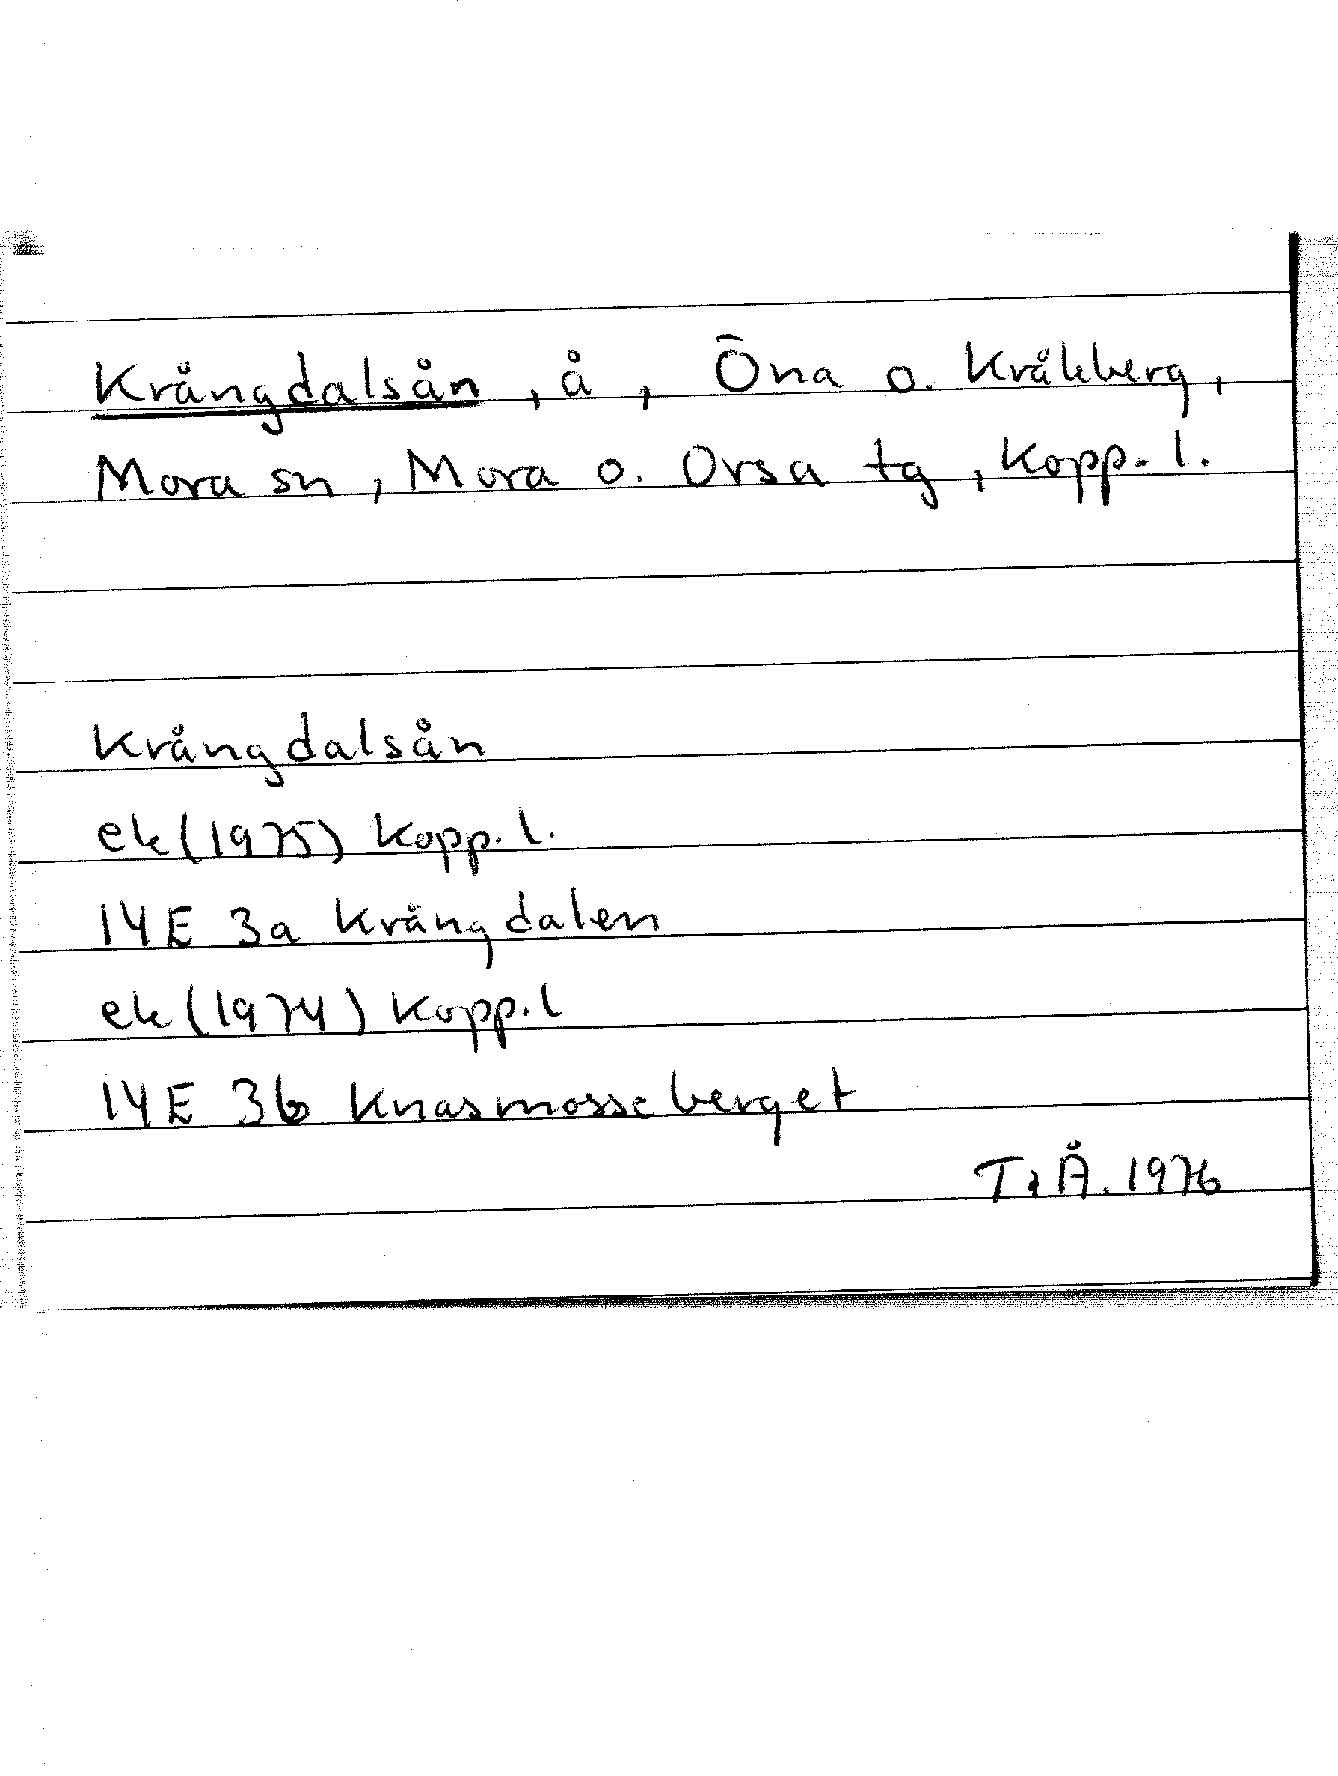 Krångdalsån, å, Öna o. Kråkberg,
Mora sn, Mora o. Orsa tg, Kopp. l.
Krångdalsån
ek (1975) Kopp. l.
14E 3a Krångdalen
ek (1974) Kopp. l
14E 3b Knasmosseberget
T. Å. 1976